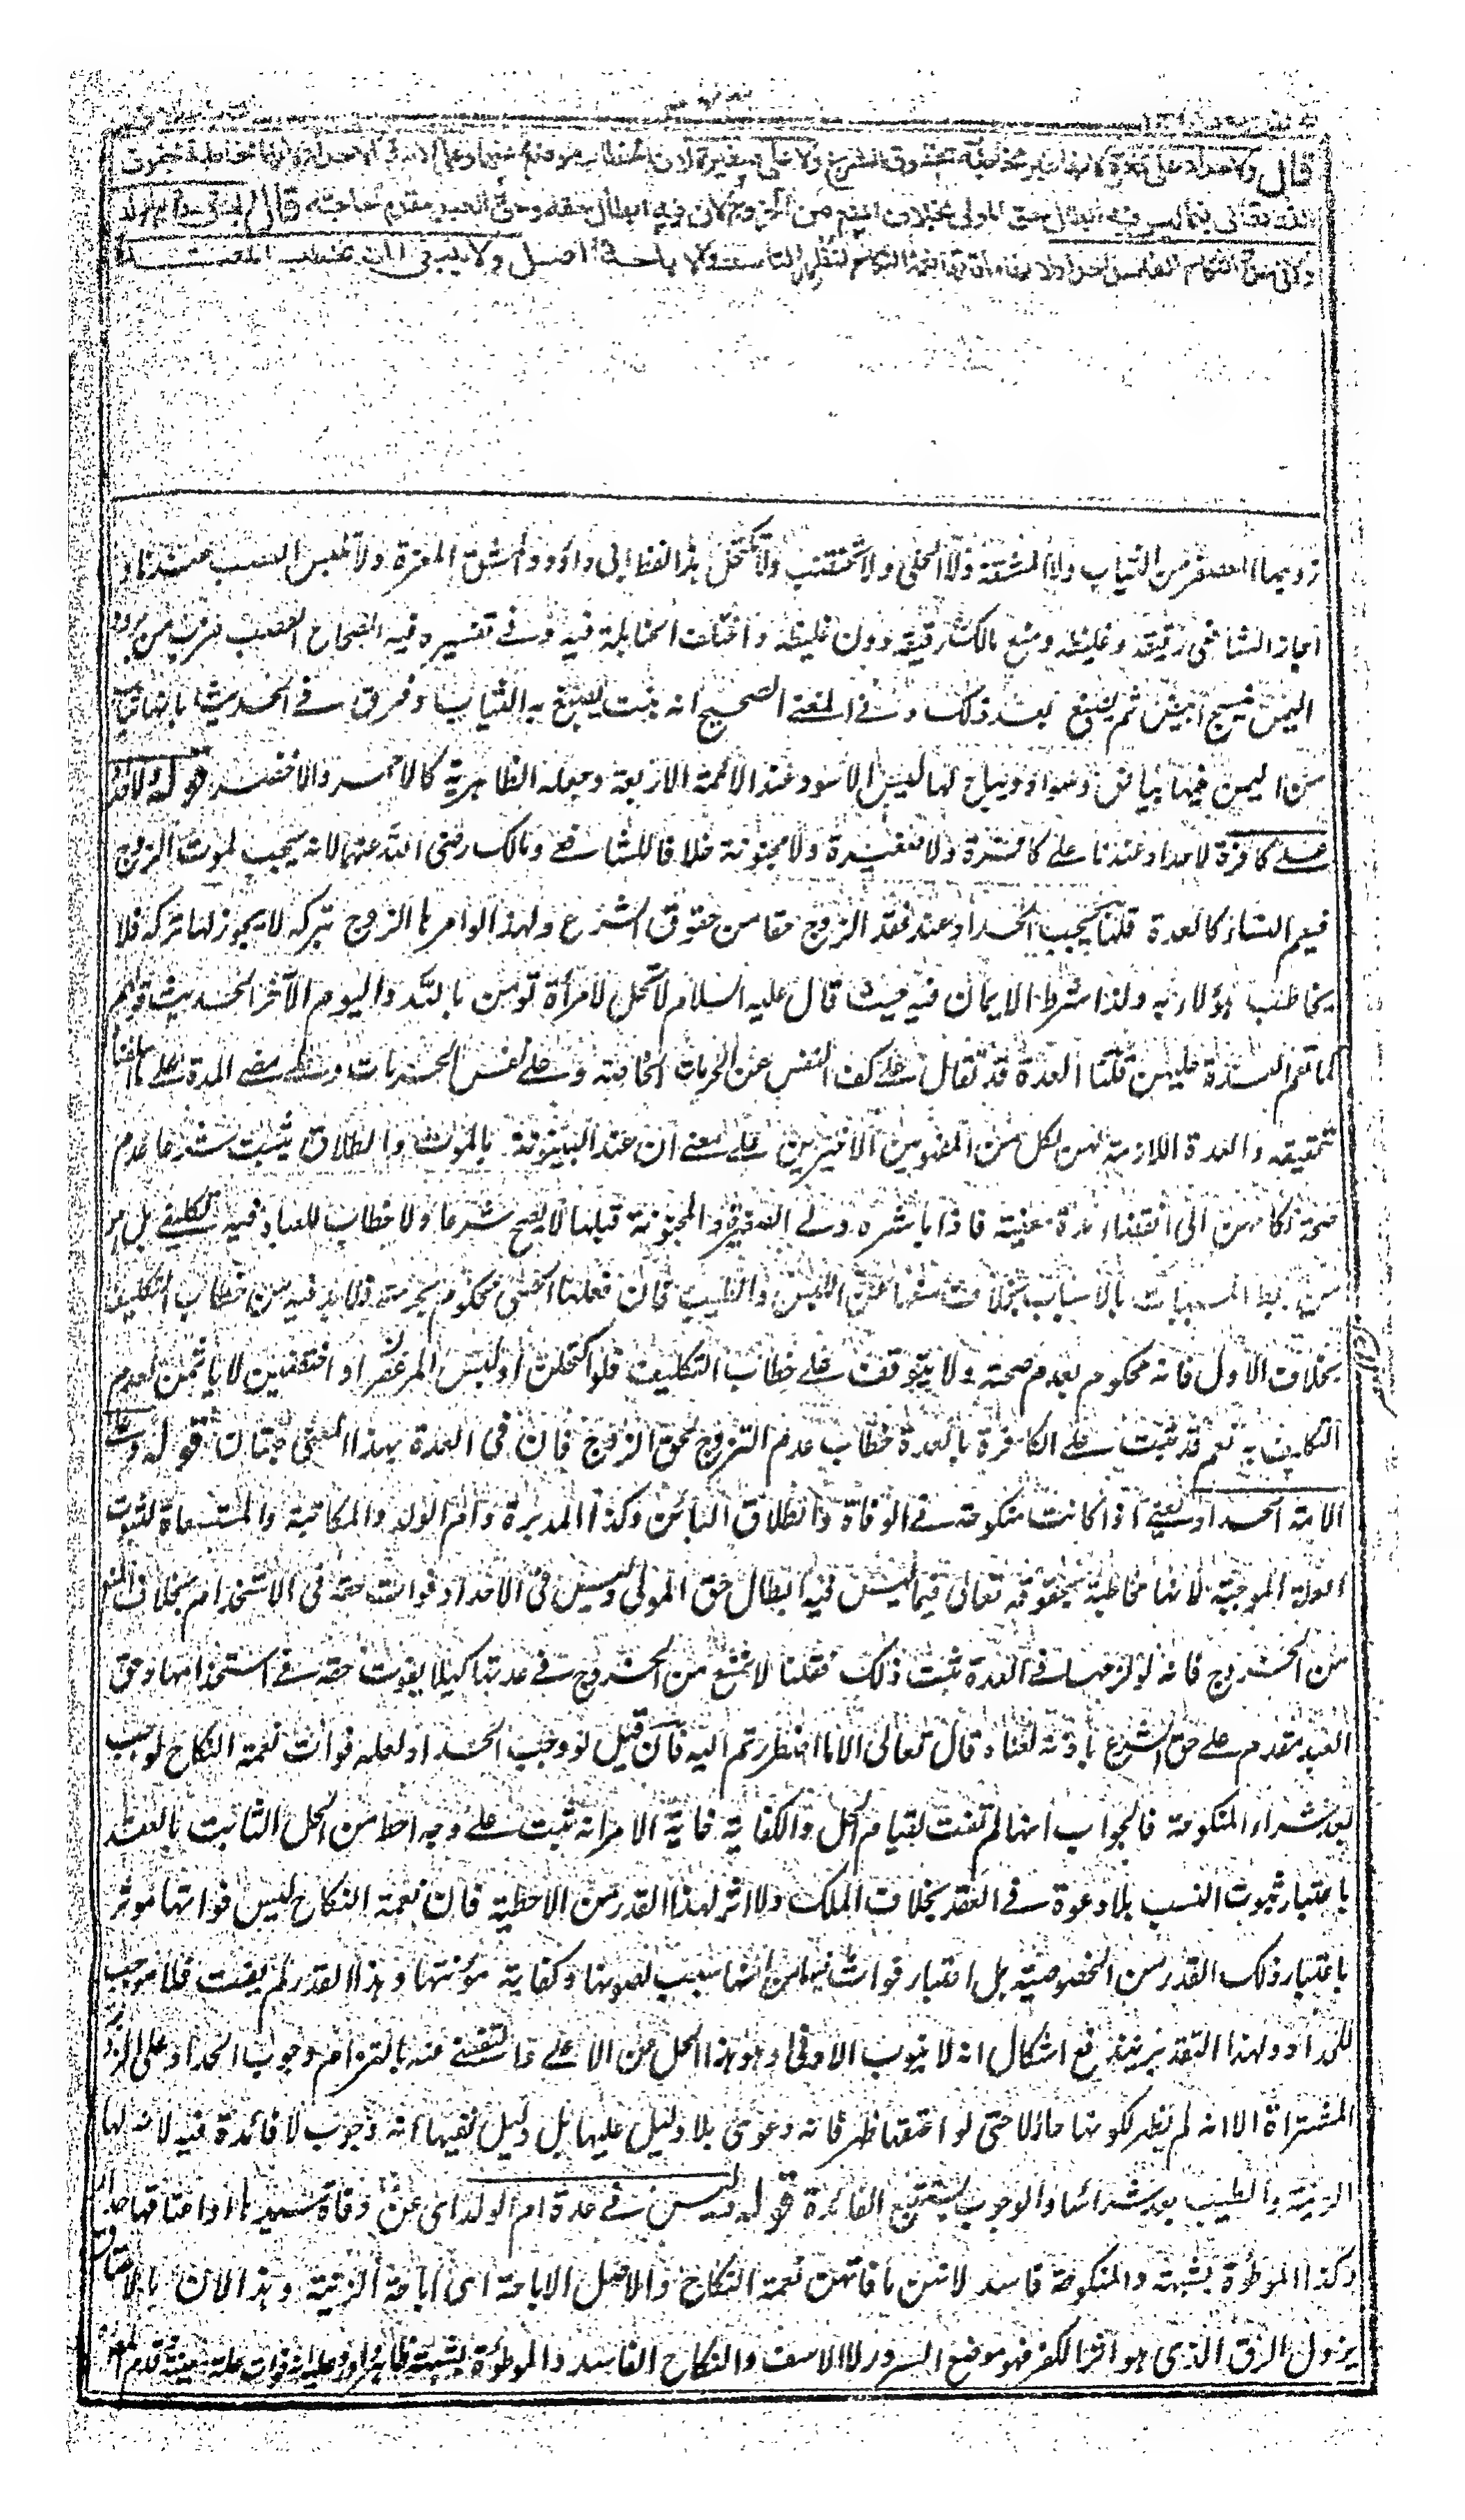 قال ولا حداد على كافرة لانها غير مخاطبة بحقوق الشرع ولا على صغيرة لان الخطاب موضوع عنها وعلى الامة الاحداد لانها مخاطبة بحقوق
الله تعالى فيما ليس فيه ابطال حق المولى بخلاف المنع من الخروج لان فيه ابطال حقه وحق العبد مقدم لحاجته قال وليس في عدة ام الولد
ولا في عدة النكاح الفاسد احداد لانها ما فاتها نعمة النكاح لتظهر التأسف والاباحة اصل ولا ينبغي ان تخطب المعتدة
زوجها المعصفر من الثياب ولا الممشقة ولا الحلي ولا تختضب ولا تكتحل هذا لفظ ابي داود والمشق المغرة ولا تلبس العصب عندنا و
اجاز الشافعي رقيقه وغليظه ومنع مالك رقيقه دون غليظه واختلف الحنابلة فيه وفي تفسيره فيه الصحاح العصب ضرب من برود
اليمن ينسج ابيض ثم يصبغ بعد ذلك وفي المغني الصحيح انه نبت يصبغ به الثياب وفرق في الحديث بانها ثياب
من اليمن فيها بياض وسواد ويباح لها لبس الاسود عند الائمة الاربعة وجعله الظاهرية كالاحمر والاخضر قوله ولا حداد
على كافرة لا حداد عندنا على كافرة ولا صغيرة ولا مجنونة خلافا للشافعي ومالك رضي الله عنهما لانه يجب لموت الزوج
فيعم النساء كالعدة قلنا يجب الحداد عند فقد الزوج حقا من حقوق الشرع ولهذا لو امرها الزوج بتركه لا يجوز لها تركه فلا
يخاطب هؤلاء به ولذا شرط الايمان فيه حيث قال عليه السلام لا تحل لامرأة تؤمن بالله واليوم الآخر الحديث قولهم
كما تعم العدة عليهن قلنا العدة قد تقال على كف النفس عن الحرمات الخاصة وعلى نفس الحرمات وعلى مضي المدة على ما قدمنا
تحقيقه والعدة اللازمة لهن لكل من المفهومين الاخيرين على معنى ان عند البينونة بالموت والطلاق يثبت شرعا عدم
صحة نكاحهن الى انقضاء مدة معينة فاذا باشره ولي الصغيرة والمجنونة قبلها لا يصح شرعا ولا خطاب للعباد فيه تكليفي بل هو
من ربط المسببات بالاسباب بخلاف منعها عن اللبس والطيب فان فعلها الحسي محكوم بحرمته فلا بد فيه من خطاب التكليف
بخلاف الاول فانه محكوم بعدم صحته ولا يتوقف على خطاب التكليف فلو اكتحلن او لبسن المزعفر او اختضبن لا يأثمن لعدم
التكليف به نعم قد ثبت على الكافرة بالعدة خطاب عدم التزوج لحق الزوج فان في العدة بهذا المعنى حقان قوله وعلى
الامة الحداد يعني اذا كانت منكوحة في الوفاة والطلاق البائن وكذا المدبرة وام الولد والمكاتبة والمستسعاة لثبوت
العلة الموجبة لانها مخاطبة بحقوقه تعالى فيما ليس فيه ابطال حق المولى وليس في الاحداد فوات حقه في الاستخدام بخلاف المنع
من الخروج فانه لو لزمها في العدة ثبت ذلك فقلنا لا تمنع من الخروج في عدتها كيلا يفوت حقه في استخدامها وحق
العبد مقدم على حق الشرع باذنه لغناه قال تعالى الا ما اضطررتم اليه فان قيل لو وجب الحداد لعلة فوات نعمة النكاح لوجب
بعد شراء المنكوحة فالجواب انها لم تفت لقيام الحل والكفاية غاية الامر انه ثبت على وجه احط من الحل الثابت بالعقد
باعتبار ثبوت النسب بلا دعوة في العقد بخلاف الملك ولا اثر لهذا القدر من الاحطية فان نعمة النكاح ليس فواتها مؤثرا
باعتبار ذلك القدر من الخصوصية بل اعتبار فوات من انها سبب لصونها وكفاية مؤنتها وهذا القدر لم يفت فلا موجب
للحداد وبهذا التقدير يندفع اشكال انه لا ينوب الادنى وهو هذا الحل من الاعلى والتفصي عنه بالتزام وجوب الحداد على
المشتراة الا انه لم يظهر لكونها حلالا حتى لو اعتقها ظهر فانه دعوى بلا دليل عليها بل دليل نفيها انه وجوب لا فائدة فيه لانه لها
الزينة والطيب بعد شرائها والوجوب يستتبع الفائدة قوله وليس في عدة ام الولد اي عن وفاة سيدها او اعتاقها حداد
وكذا الموطؤة بشبهة والمنكوحة فاسد لانهن ما فاتهن نعمة النكاح والاصل الاباحة اي اباحة الزينة وهذا لان بالاعتاق
يزول الرق الذي هو اثر الكفر فهو موضع السرور لا الاسف والنكاح الفاسد والموطؤة بشبهة